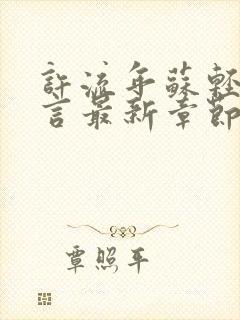 許流年蘇輕
言最新章節
覃照平